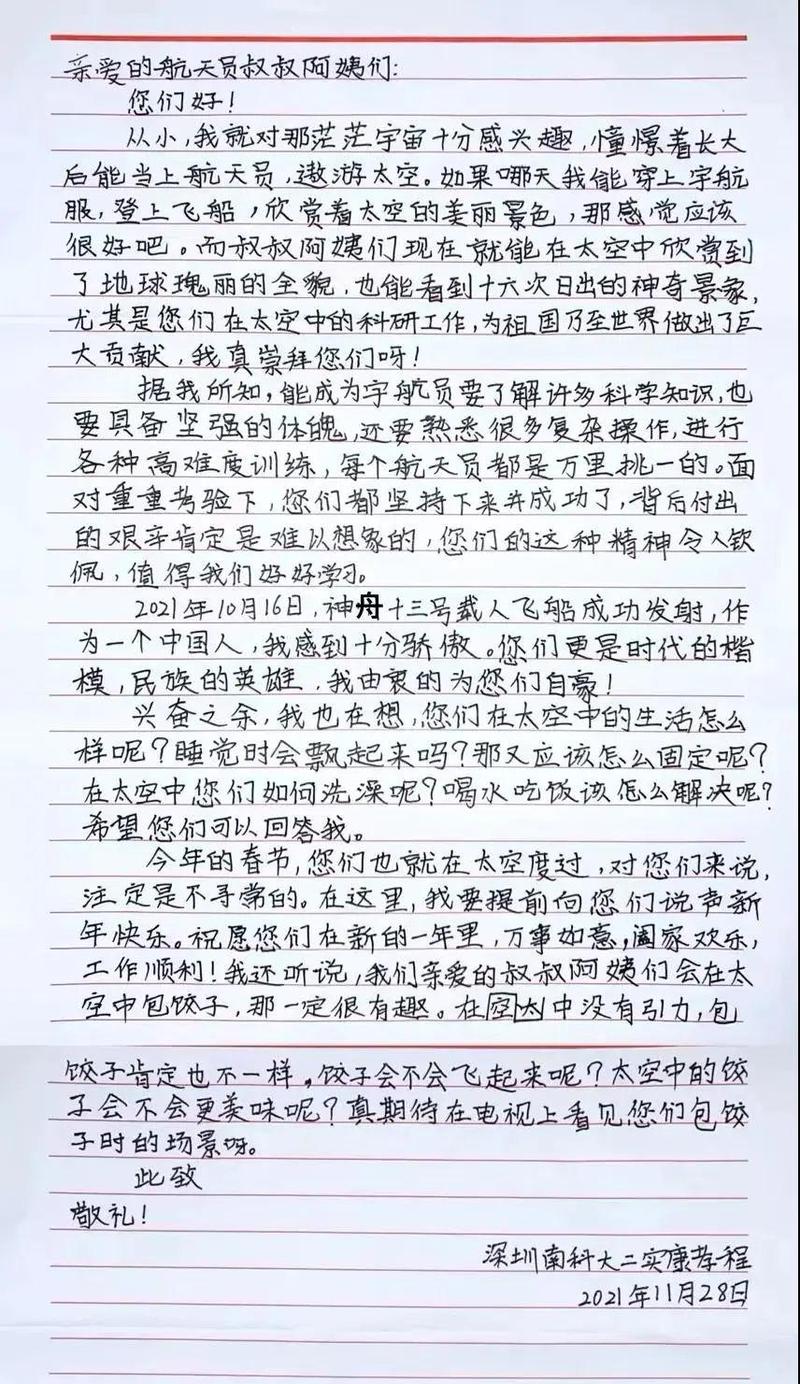 亲爱的航天员叔叔阿姨们:
您们好!
从小,我就对那茫茫宇宙十分感兴趣,憧憬着长大
后能当上航天员,遨游太空。如果哪天我能穿上宇航
服,登上飞船,欣赏着太空的美丽景色,那感觉应该
很好吧。而叔叔阿姨们现在就能在太空中欣赏到
了地球瑰丽的全貌,也能看到十六次日出的神奇景象,
尤其是您们在太空中的科研工作,为祖国乃至世界做出了巨
大贡献,我真崇拜您们呀!
据我所知,能成为宇航员要了解许多科学知识,也
要具备坚强的体魄,还要熟悉很多复杂操作,进行
各种高难度训练,每个航天员都是万里挑一的。面
对重重考验下,您们都坚持下来并成功了,背后付出
的艰辛肯定是难以想象的,您们的这种精神令人钦
佩,值得我们好好学习。
2021年10月16日,神舟十三号载人飞船成功发射,作
为一个中国人,我感到十分骄傲。您们更是时代的楷
模,民族的英雄,我由衷的为您们自豪!
兴奋之余,我也在想,您们在太空中的生活怎么
样呢?睡觉时会飘起来吗?那又应该怎么固定呢?
在太空中您们如何洗澡呢?喝水吃饭该怎么解决呢?
希望您们可以回答我。
今年的春节,您们也就在太空度过,对您们来说,
注定是不寻常的。在这里,我要提前向您们说声新
年快乐。祝愿您们在新的一年里,万事如意,阖家欢乐,
工作顺利!我还听说,我们亲爱的叔叔阿姨们会在太
空中包饺子,那一定很有趣。在空太中没有引力,包
饺子肯定也不一样。饺子会不会飞起来呢?太空中的饺
子会不会更美味呢?真期待在电视上看见您们包饺
子时的场景呀。
此致
敬礼!
深圳南科大二实康孝程
2021年11月28日